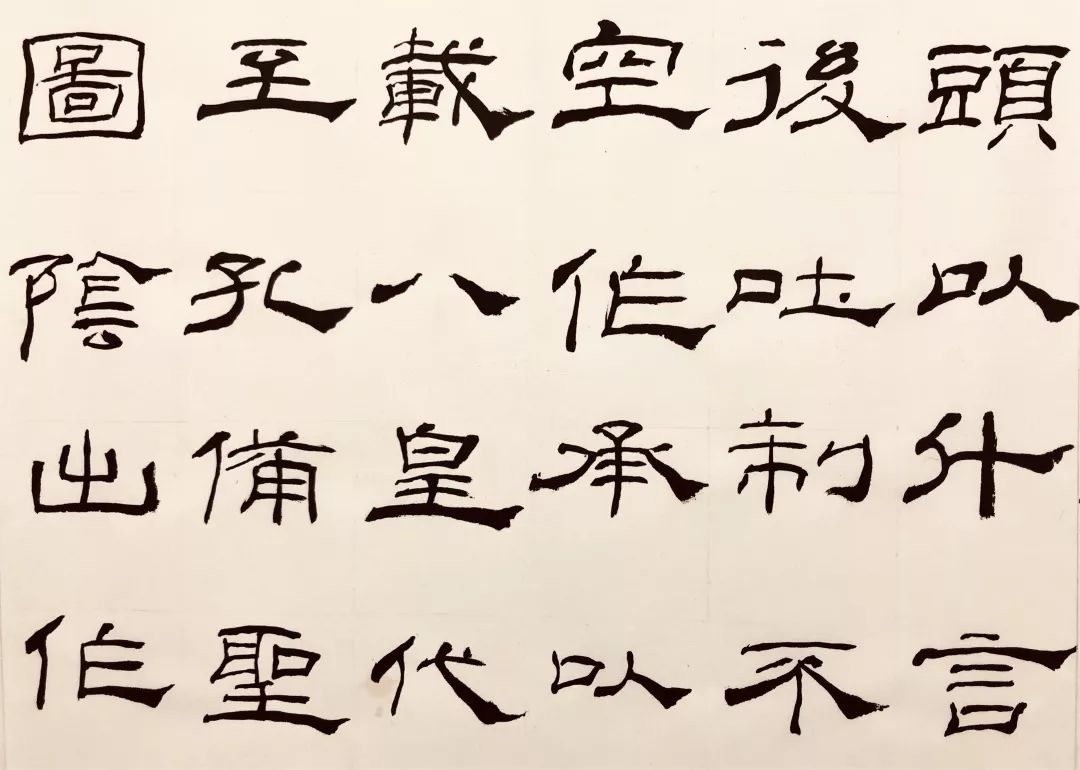 頭以什言
後吐制不
空作承以
載八皇代
至孔備聖
圖陰出作